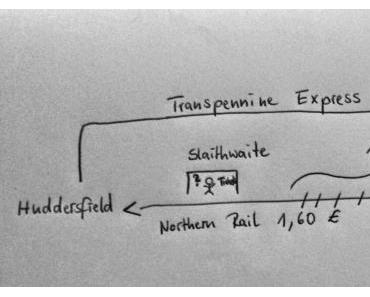 Transpennine Express
Slaithwaite
?
Huddersfield
Northern Rail 1,60 €